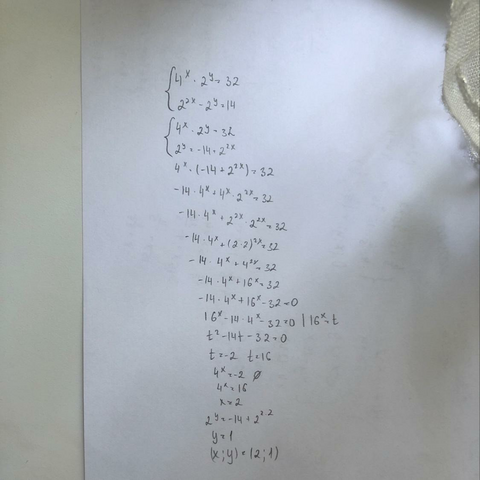 4^x · 2^y = 32
2^{2x} - 2^y = 14
4^x · 2^y = 32
2^y = -14 + 2^{2x}
4^x · (-14 + 2^{2x}) = 32
-14 · 4^x + 4^x · 2^{2x} = 32
-14 · 4^x + 2^{2x} · 2^{2x} = 32
-14 · 4^x + (2 · 2)^{2x} = 32
-14 · 4^x + 4^{2x} = 32
-14 · 4^x + 16^x = 32
-14 · 4^x + 16^x - 32 = 0
16^x - 14 · 4^x - 32 = 0 | 16^x = t
t² - 14t - 32 = 0
t = -2 t = 16
4^x = -2 ∅
4^x = 16
x = 2
2^y = -14 + 2^{2·2}
y = 1
(x; y) = (2; 1)